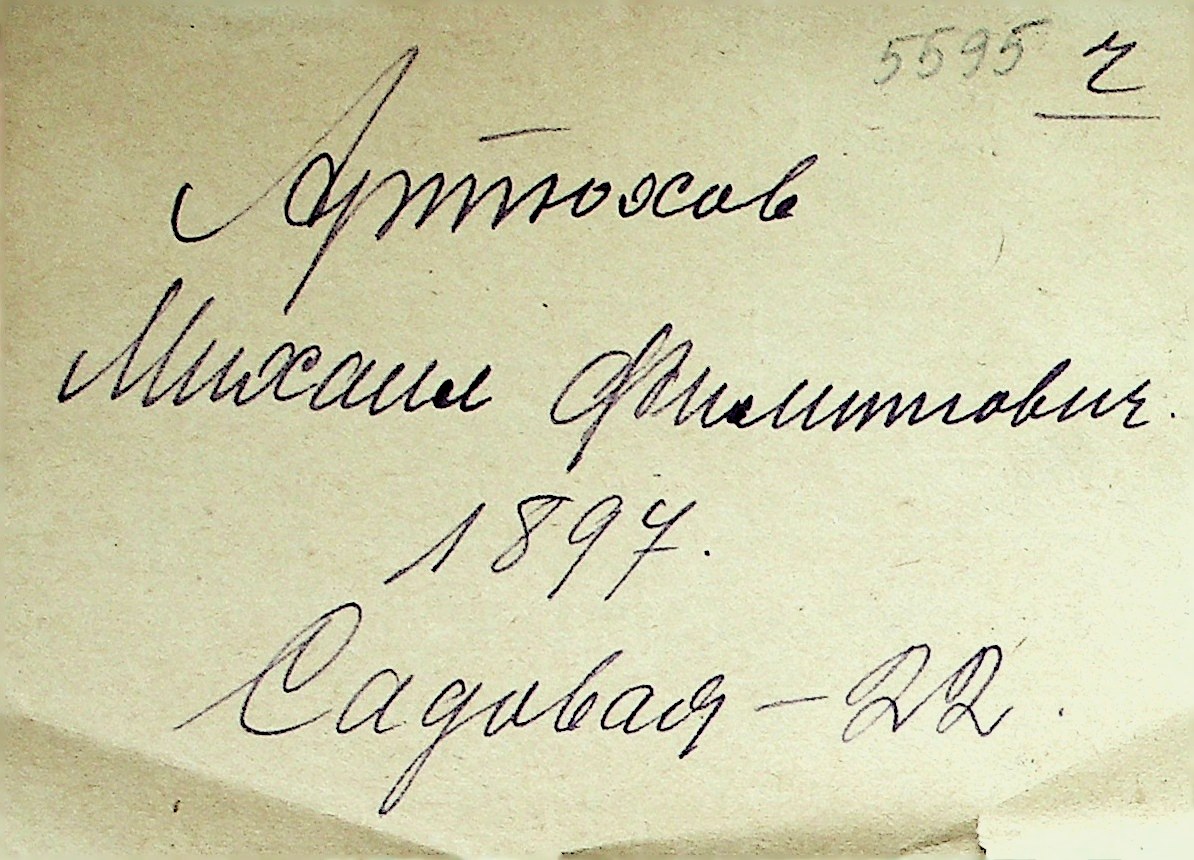 5595 ч
Артюхов
Михаил Филиппович.
1897.
Садовая - 22.